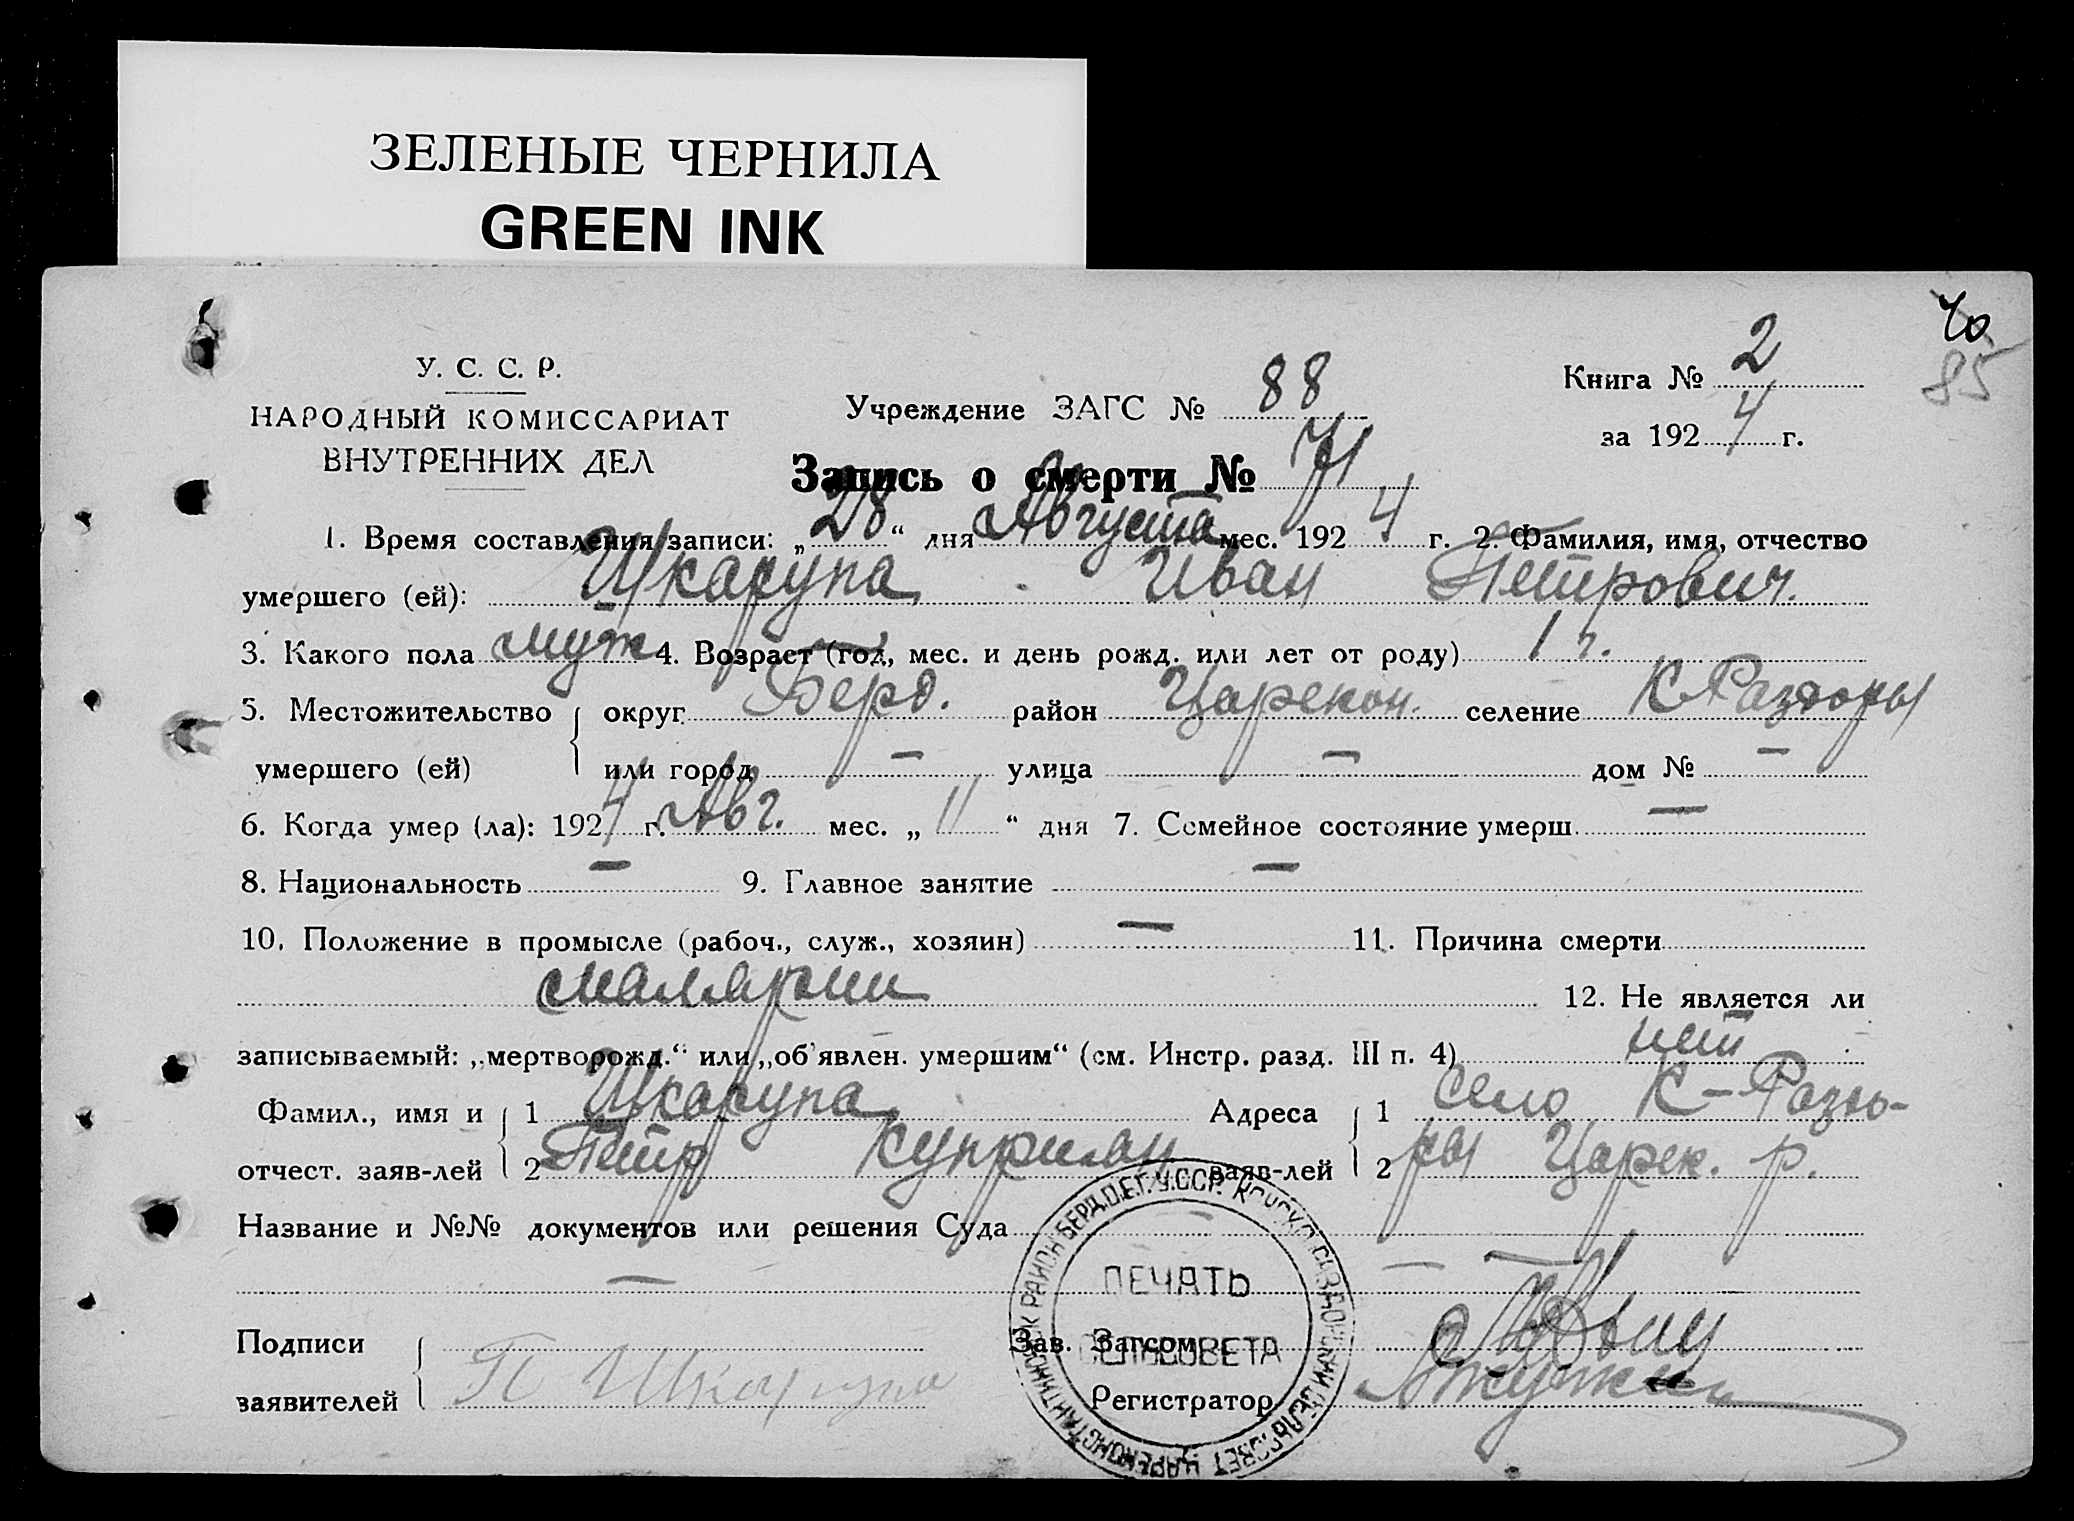 ЗЕЛЕНЫЕ ЧЕРНИЛА
GREEN INK
40
85
У. С. С. Р.
НАРОДНЫЙ КОМИССАРИАТ
ВНУТРЕННИХ ДЕЛ
Учреждение ЗАГС № 88
Книга № 2
за 1924 г.
Запись о смерти № 71
1. Время составления записи: „28“ дня Августа мес. 1924 г. 2. Фамилия, имя, отчество
умершего (ей): Шкарупа Иван Петрович.
3. Какого пола муж 4. Возраст (год, мес. и день рожд. или лет от роду) 1 г.
5. Местожительство округ Берд. район Царекон. селение К Раздоры
умершего (ей) или город — улица — дом № —
6. Когда умер (ла): 1924 г. Авг. мес. „11“ дня 7. Семейное состояние умерш. —
8. Национальность — 9. Главное занятие —
10. Положение в промысле (рабоч., служ., хозяин) — 11. Причина смерти
малярии 12. Не является ли
записываемый: „мертворожд.“ или „об'явлен. умершим“ (см. Инстр. разд. III п. 4) нет
Фамил., имя и 1 Шкарупа Адреса 1 село К-Раздо-
отчест. заяв-лей 2 Петр Куприян заяв-лей 2 ры Царек. р.
Название и №№ документов или решения Суда —
—
Подписи Зав. Загсом
заявителей П Шкарупа Регистратор
ПЕЧАТЬ
СЕЛЬСОВЕТА